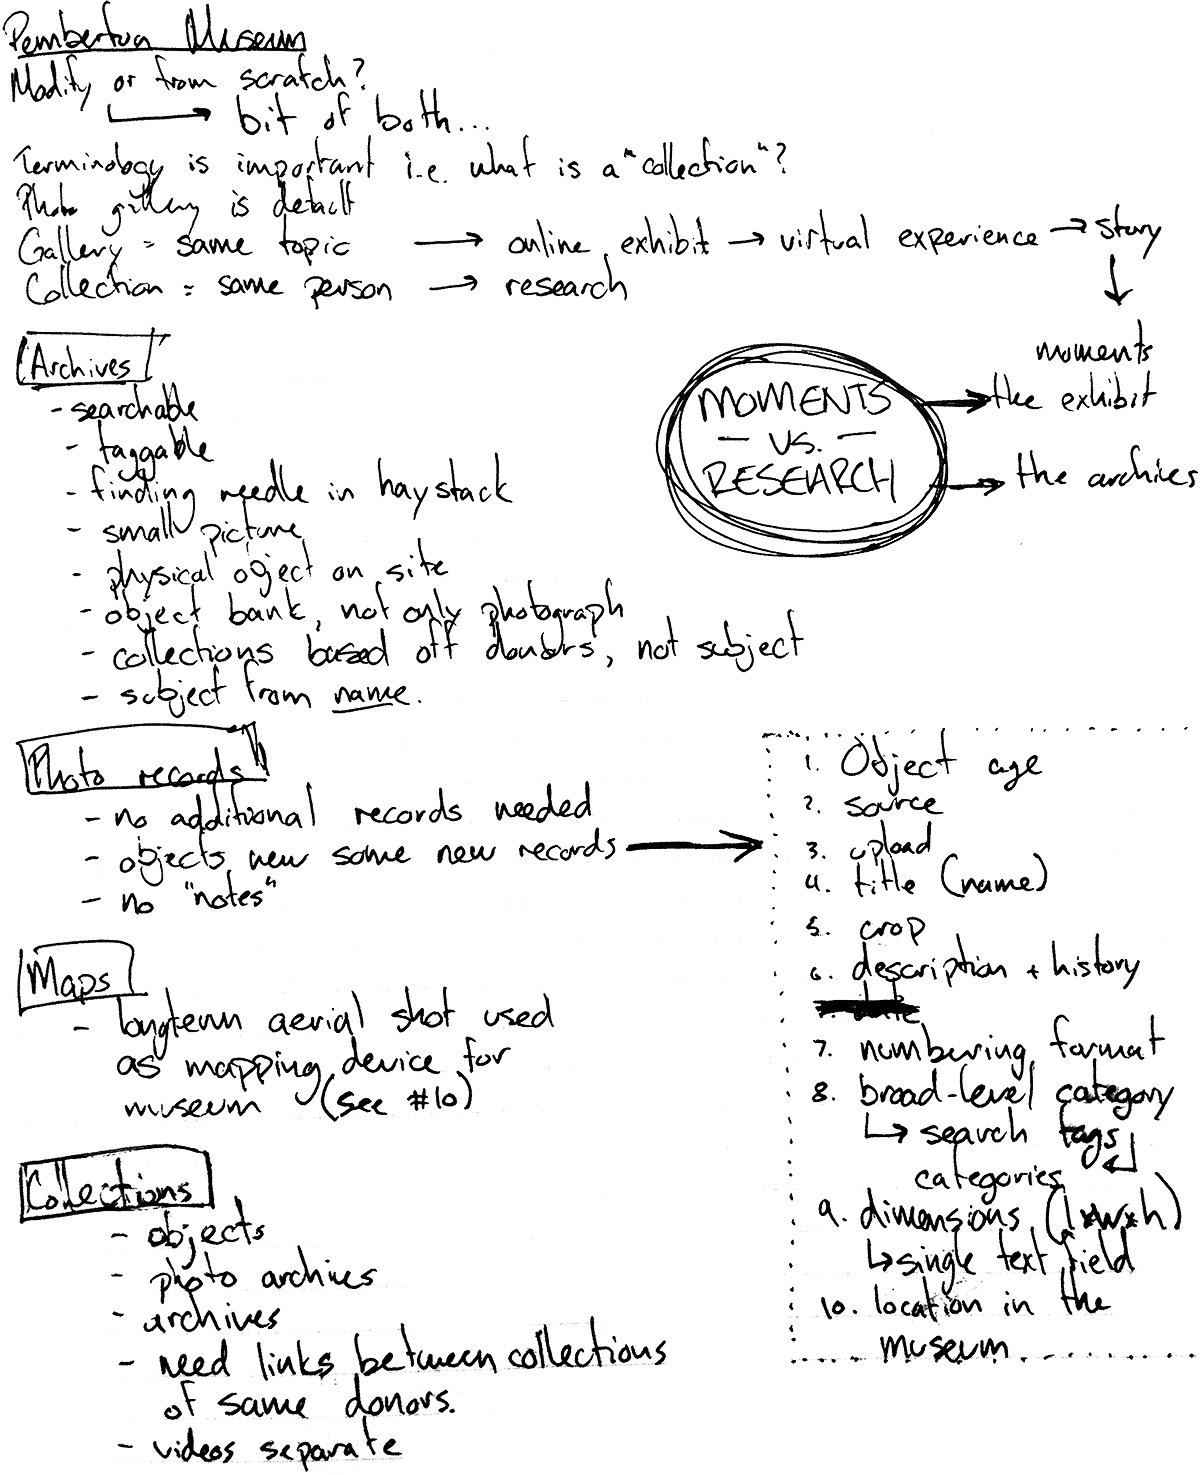 Pemberton Museum
Modify or from scratch?
bit of both...
Terminology is important i.e. what is a "collection"?
Photo gallery is default
Gallery = same topic → online exhibit → virtual experience → story
↓
moments
Collection = same person → research
MOMENTS
— VS. —
RESEARCH
→ the exhibit
→ the archives
Archives
- searchable
- taggable
- finding needle in haystack
- small picture
- physical object on site
- object bank, not only photograph
- collections based off donors, not subject
- subject from name.
Photo records
- no additional records needed
- objects new some new records →
- no "notes"
1. Object age
2. source
3. upload
4. title (name)
5. crop
6. description + history
7. numbering format
8. broad-level category
↳ search tags
categories
9. dimensions (l×w×h)
↳ single text field
10. location in the
museum
Maps
- longterm aerial shot used
as mapping device for
museum (see #10)
Collections
- objects
- photo archives
- archives
- need links between collections
of same donors.
- videos separate